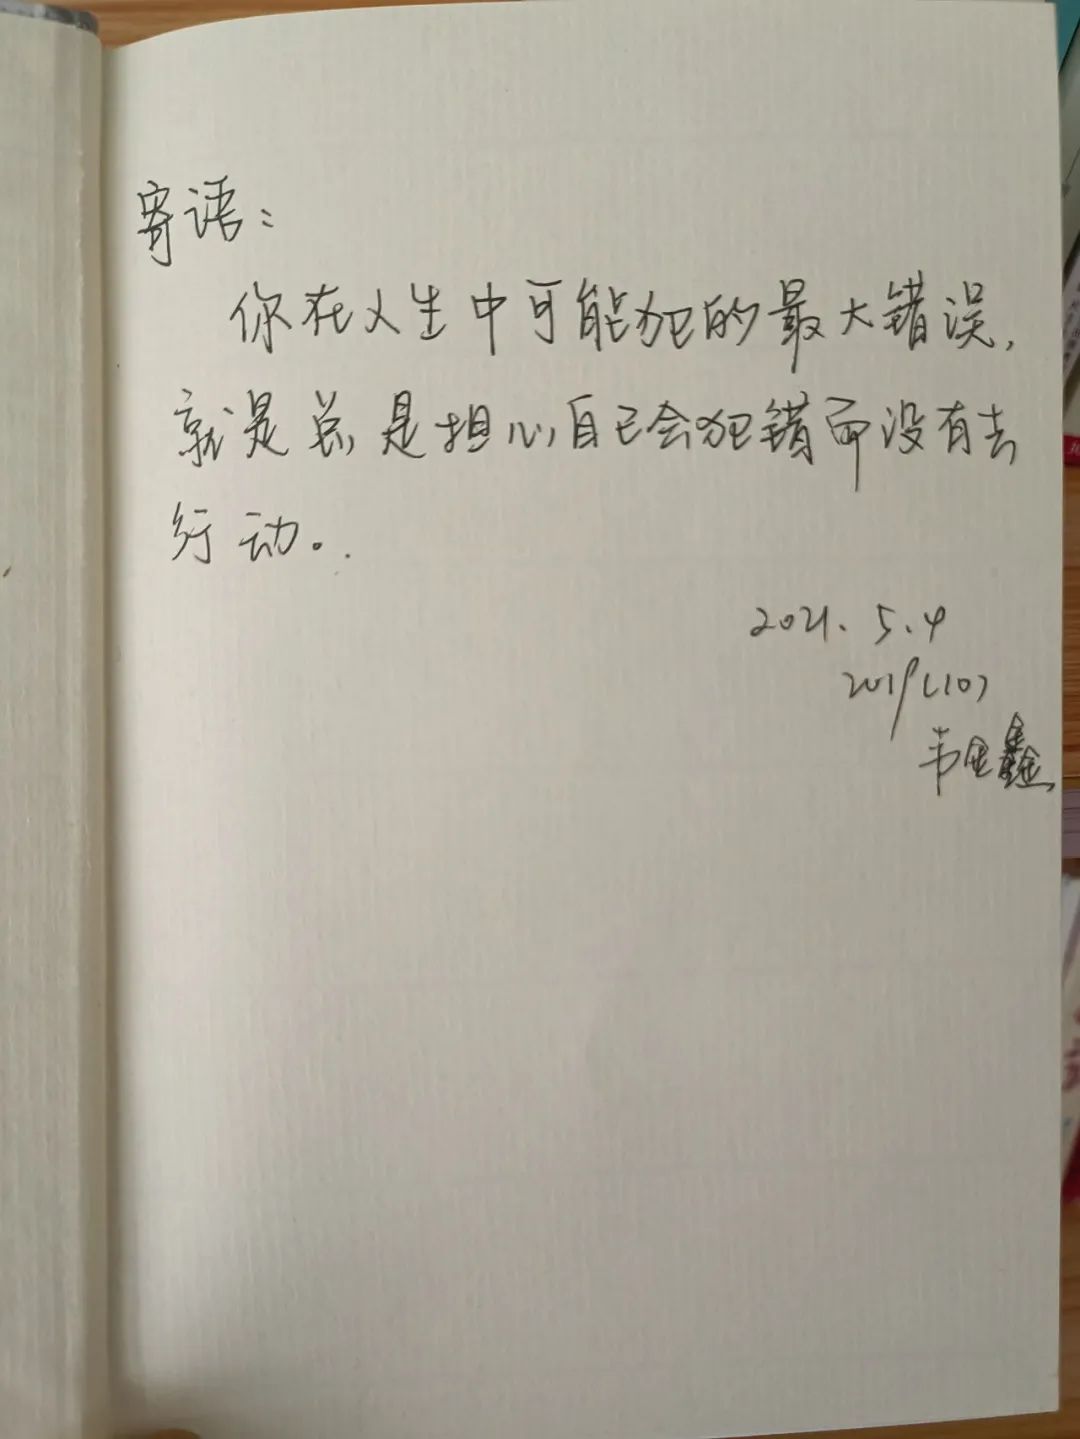 寄语：
你在人生中可能犯的最大错误，
就是总是担心自己会犯错而没有去
行动。
2021.5.4
韦金鑫